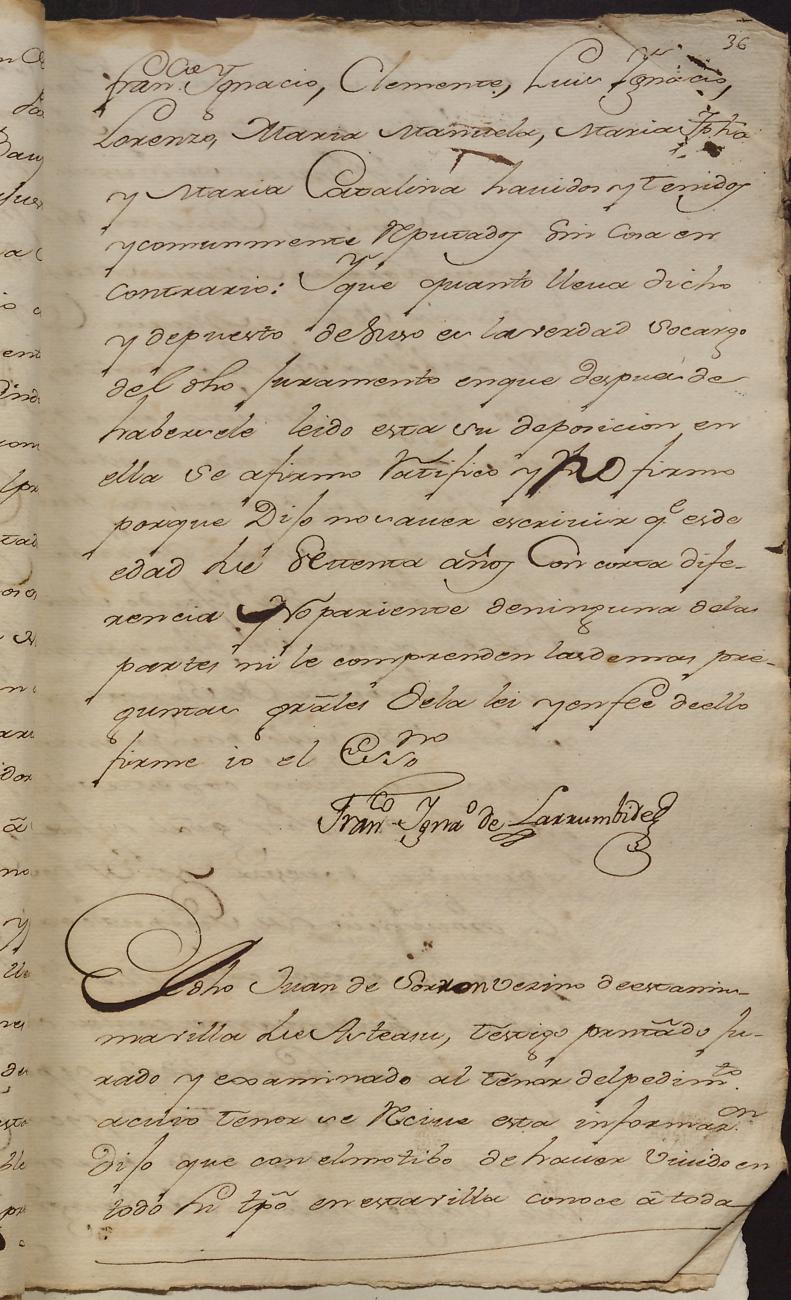 36
Fran.co Ygnacio, Clemente, Luis Ygnacio,
Lorenzo, Maria Manuela, Maria Jpha
y Maria Catalina hauidos y tenidos
y comunmente Reputados sin Cosa en
contrario: Y que quanto lleua dicho
y depuesto desuso es la verdad so cargo
del dho Juramento en que despues de
habersele leido esta su deposicion en
ella se afirmo Ratifico y no firmo
porque Dijo no sauer escriuir q.e es de
edad de settenta años Con corta dife-
rencia y No pariente de ninguna de las
partes ni le comprenden las demas pre-
guntas grãles de la lei y en feé de ello
firme io el Ess.no
Fran.co Ygna.o de Larrumbide
El dho Juan de Sorron vezino de esta mis-
ma villa de Asteasu, testigo prntãdo ju-
rado y examinado al tenor del pedim.to
a cuio tenor se Reciue esta informaz.on
Dijo que con el motibo de hauer viuido en
todo su tpõ en esta villa conoce ã toda